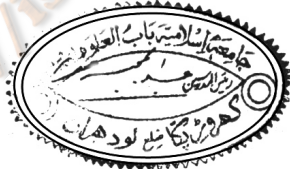 جامعہ اسلامیہ باب العلوم
رئیس المدرسین
عبد المجید
کھروڑ پکا ضلع لودھراں